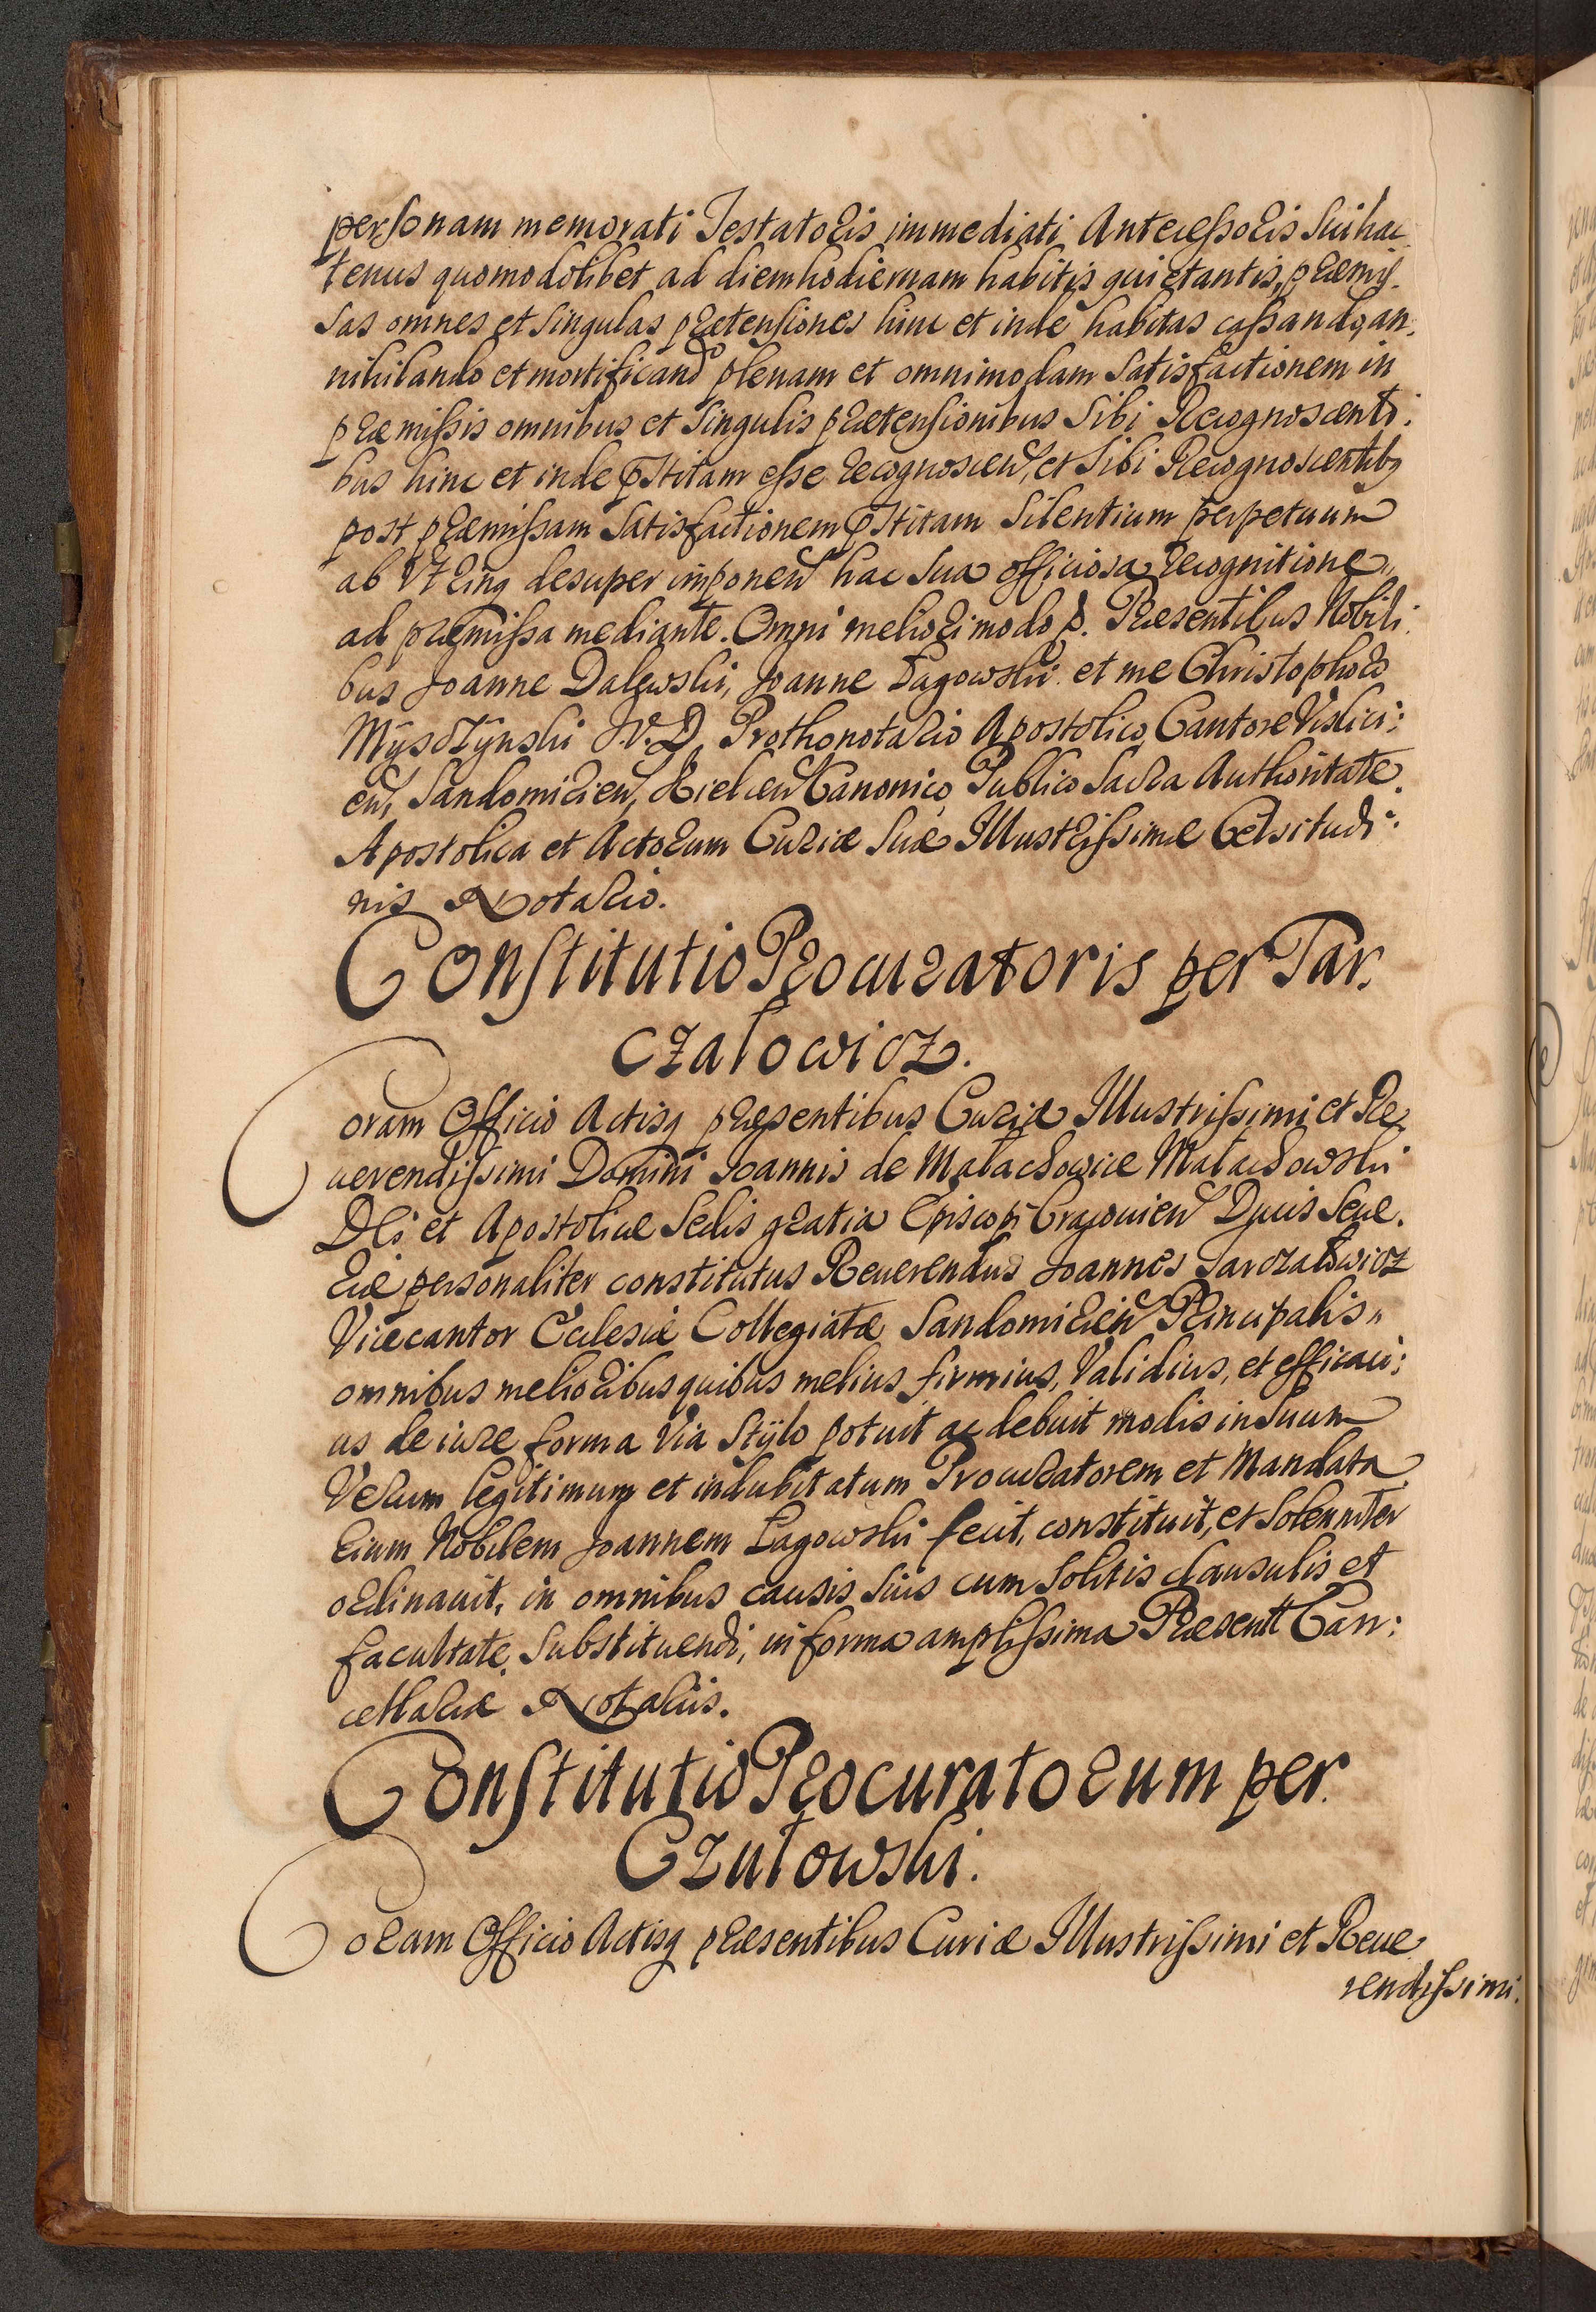 personam memorati Testatoris immediati Antecessoris sui hac
tenus quomodolibet ad diem hodiernam habitis quietantis, præmis
sas omnes et singulas prætensiones hinc et inde habitas cassando, an
nihilando et mortificand plenam et omnimodam satisfactionem in
præmissis omnibus et singulis prætensionibus sibi Recognoscenti:
bus hinc et inde pstitam esse recognoscen, et sibi Recognoscentibq
post præmissam satisfactionem pstitam silentium perpetuum
ab utrinq desuper imponen hac sua officiosa recognitione
ad præmissa mediante. Omni meliori modo p. Præsentibus Nobili.
bus Joanne Dalewski, Joanne Łagowski et me Christophoro
Mÿsczÿnski J.V.D. Prothonotario Apostolico, Cantore Vislici:
en, Sandomirien, Kielcen Canonico, Publico Sacra Authoritate
Apostolica et Actorum Curiæ Suæ Illustrissimæ Celsitudi:
nis Notario.
Constitutio Procuratoris per Tar.
czałowicz.
Coram Officio Actisq præsentibus Curiæ Illustrissimi et Re
uerendissimi Domini Joannis de Małachowice Małachowski
DEi et Apostolicæ Sedis gratia Episcopi Cracouien Ducis Seue.
riæ personaliter constitutus Reuerendus Joannes Tarczałowicz
Vicecantor Ecclesiæ Collegiatæ Sandomirien Principalis
omnibus melioribus quibus melius firmius, Validius, et efficaci:
us de iure forma Via Stÿlo potuit ac debuit modis in suum
Verum legitimum et indubitatum Procuratorem et Mandata
rium Nobilem Joannem Łagowski fecit, constituit, et solenniter
ordinauit, in omnibus causis suis cum solitis clausulis et
facultate substituendi, in forma amplissima Præsentt Can:
cellariæ Notariis.
Constitutio Procuratorum per
Czułowski.
Coram Officio Actisq præsentibus Curiæ Illustrissimi et Reue
rendissimi.